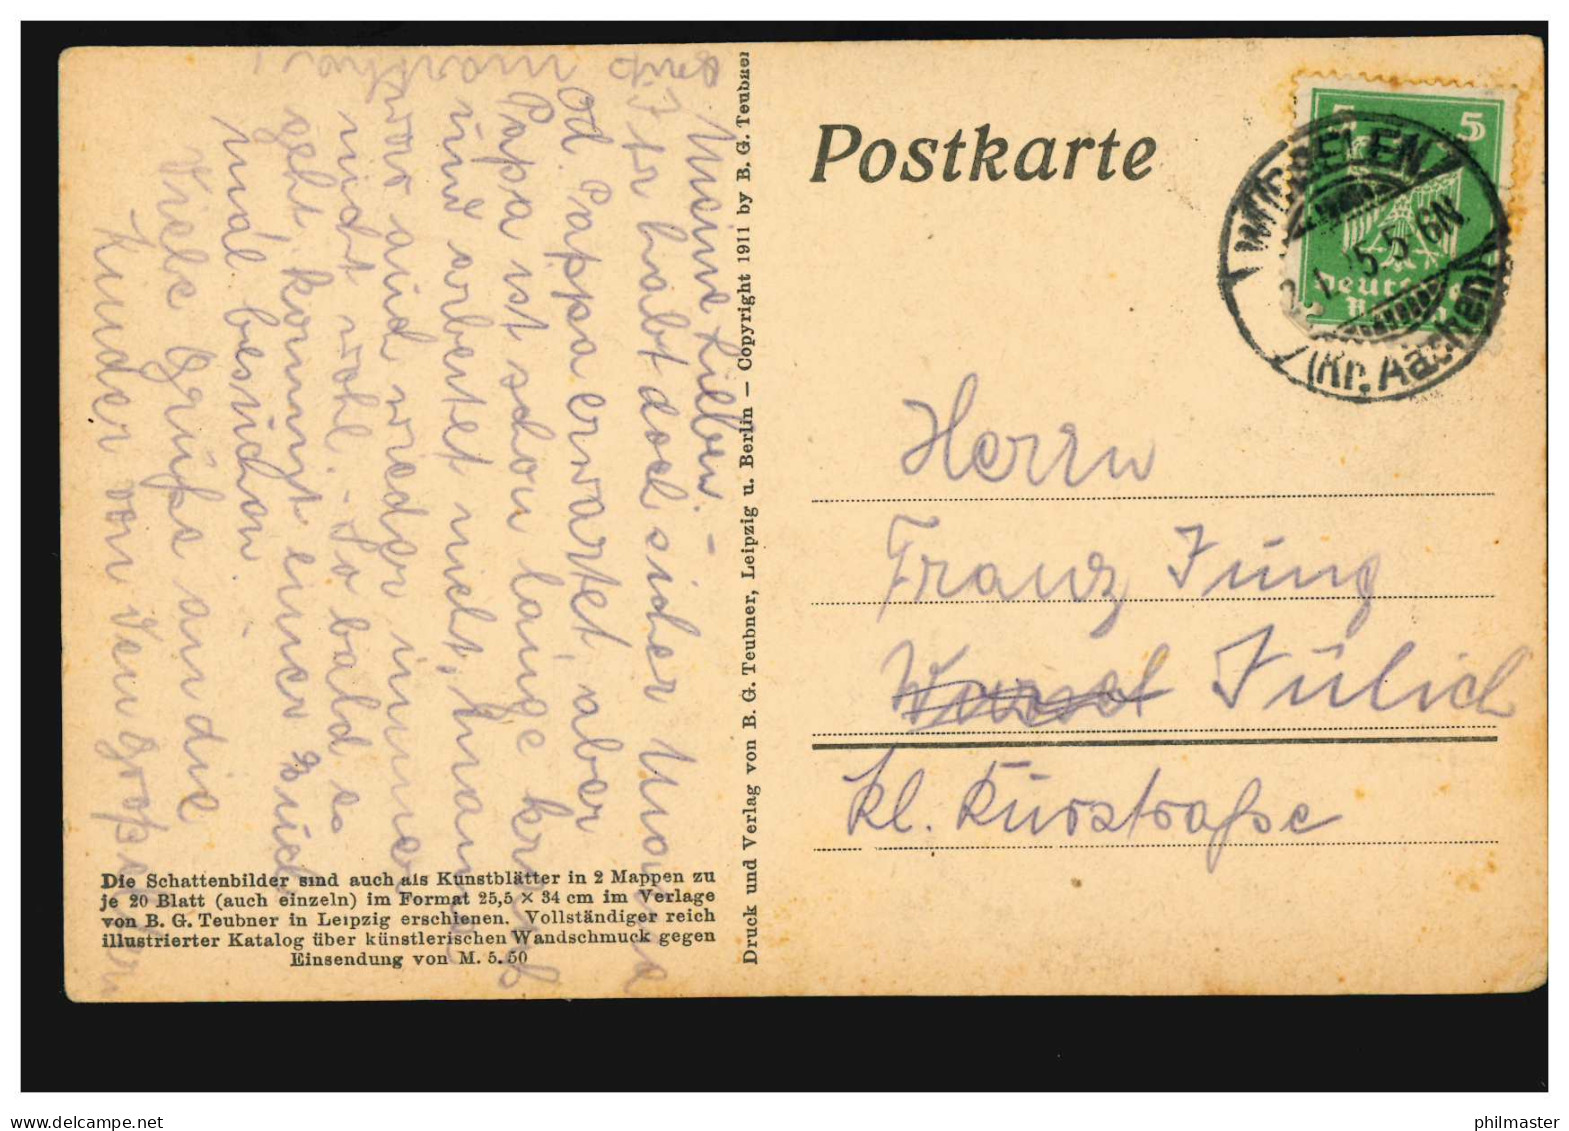 Postkarte
5 5
WÜRSELEN
5.5. 6N
(Kr. Aachen)
Deutsches
Reich
Herrn
Franz Jung
Jülich
kl. Kurstraße
Meine Lieben. –
Ihr habt doch sicher Mama
od. Pappa erwartet, aber
Papa ist schon lange krank
und arbeitet nicht, Mama
war auch wieder immer
nicht wohl. – So bald es
geht kommt einer Euch
mal besuchen
Viele Grüße an die
Kinder von den Großeltern
Druck und Verlag von B. G. Teubner, Leipzig u. Berlin — Copyright 1911 by B. G. Teubner
Die Schattenbilder sind auch als Kunstblätter in 2 Mappen zu
je 20 Blatt (auch einzeln) im Format 25,5 × 34 cm im Verlage
von B. G. Teubner in Leipzig erschienen. Vollständiger reich
illustrierter Katalog über künstlerischen Wandschmuck gegen
Einsendung von M. 5.50
www.delcampe.net
philmaster